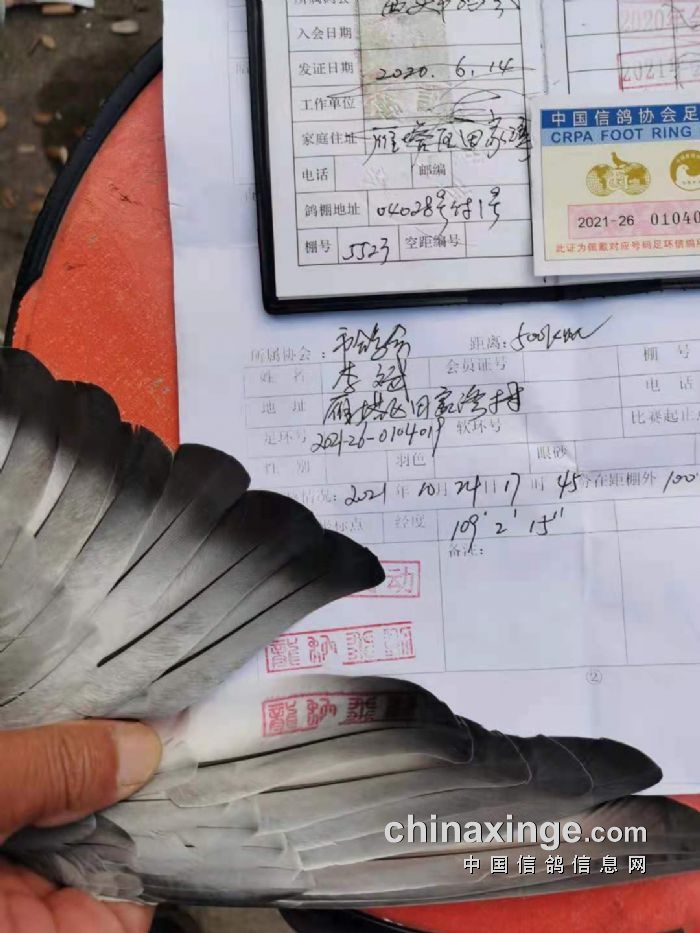 入会日期
发证日期 2020. 6. 14
工作单位
家庭住址 雁塔区田家湾
电话 邮编
鸽棚地址 04028号付1号
棚号 5523 空距编号
中国信鸽协会足
CRPA FOOT RING
2021-26 01040
此证为佩戴对应号码足环信鸽
所属协会: 市鸽会 距离: 500km
姓 名 李斌 会员证号 棚 号
地 址 雁塔区田家湾村 电 话
足环号 2021-26-0104019 软环号 比赛起止点
性 别 羽色 眼砂
情况: 2021 年 10 月 24 日 17 时 45 分在距棚外 100
坐标点 经度 109° 2' 15"
备注:
动
②
chinaxinge.com
中国信鸽信息网